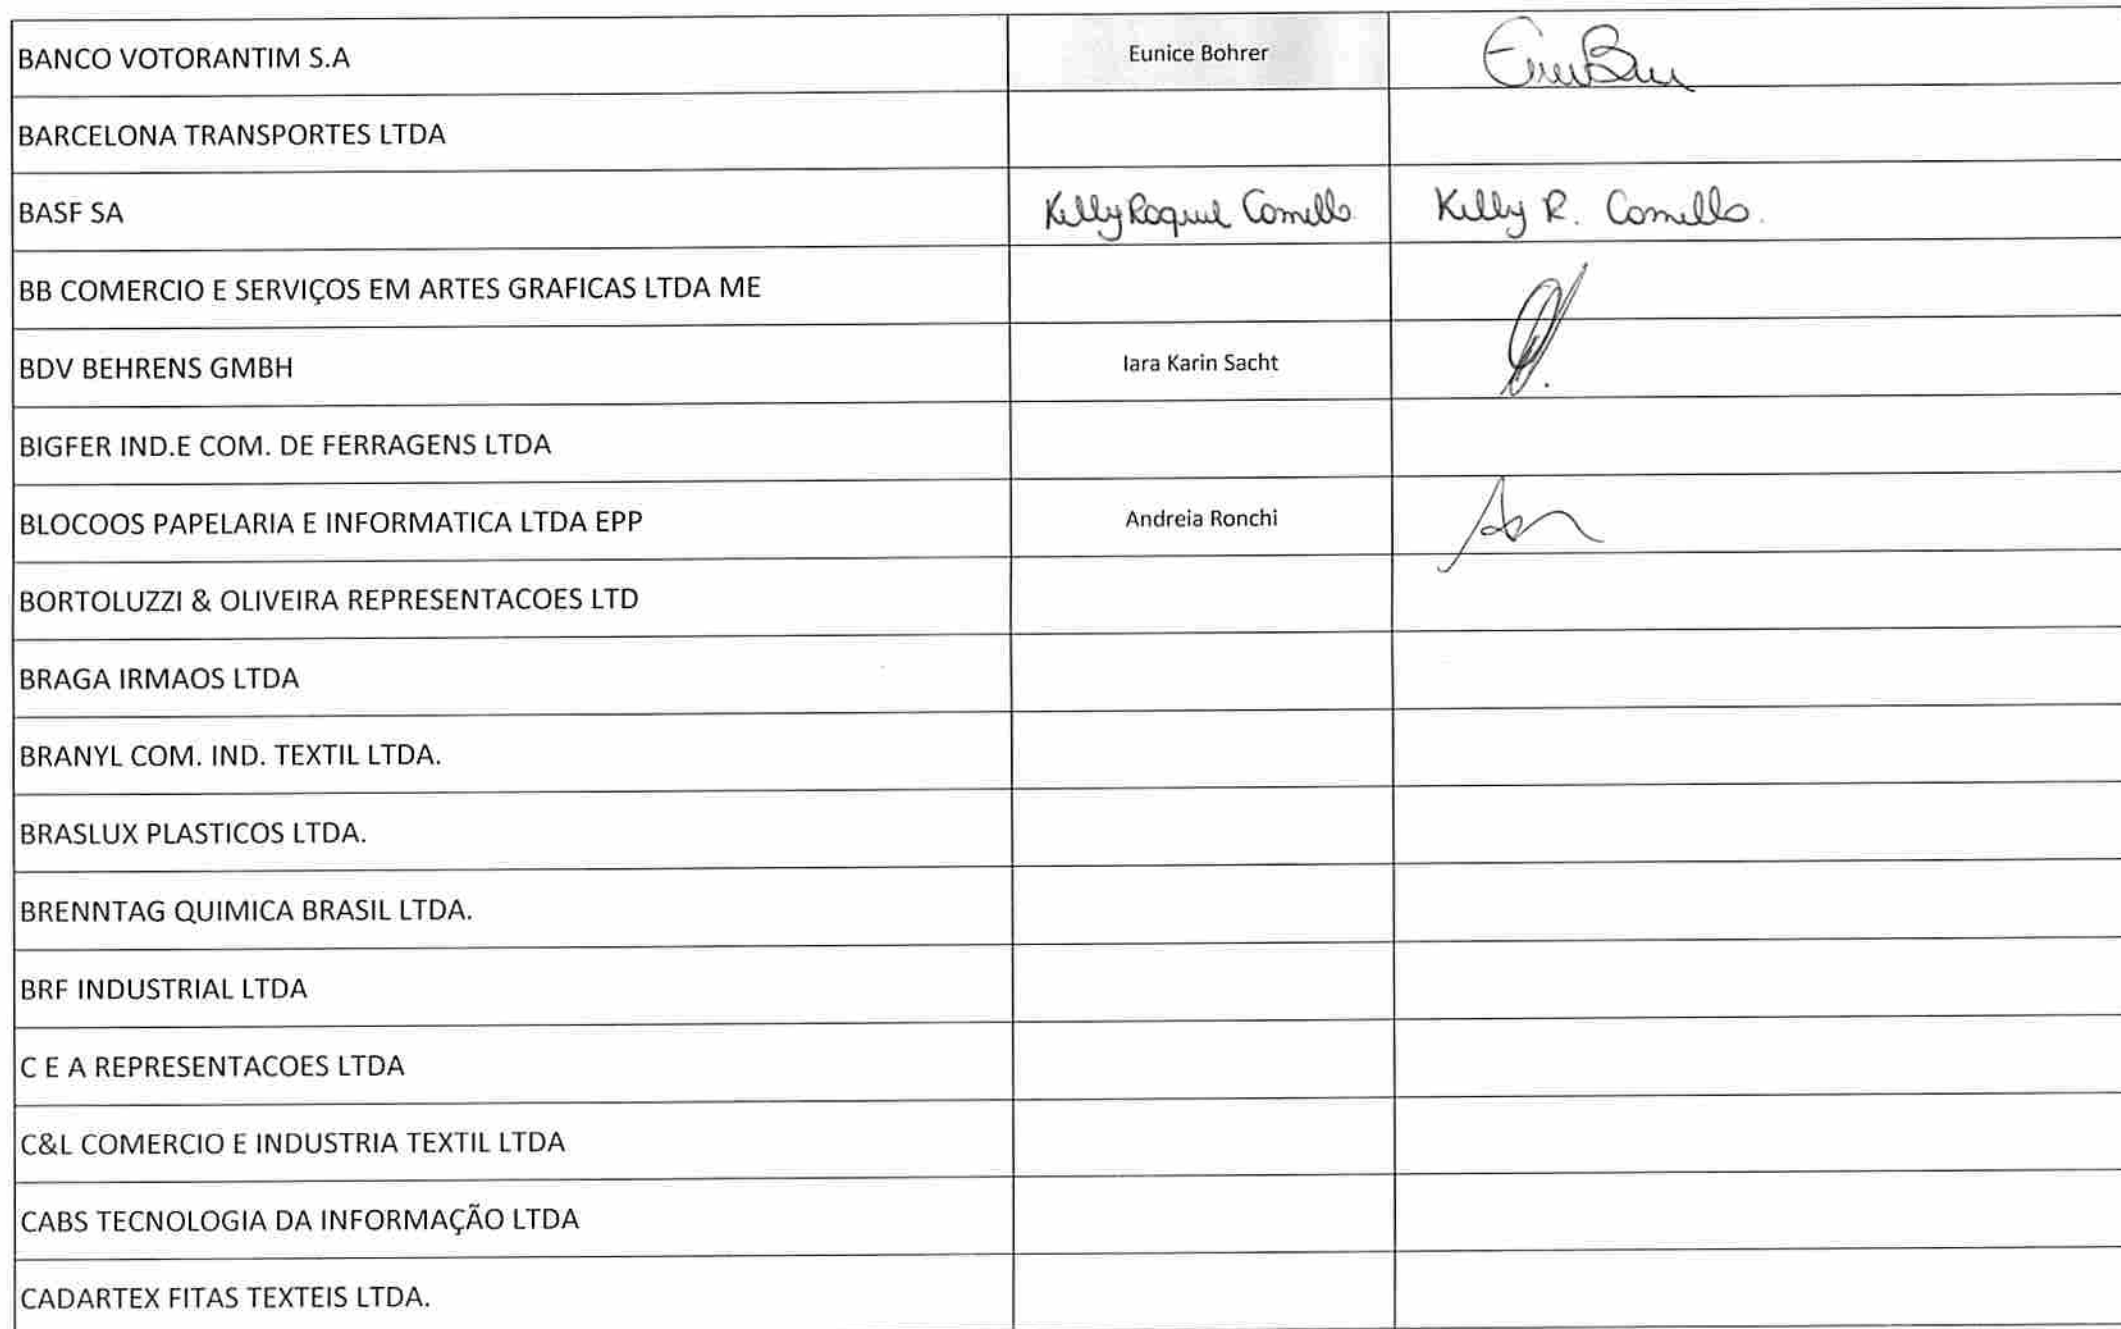 BANCO VOTORANTIM S.A Eunice Bohrer
BARCELONA TRANSPORTES LTDA
BASF SA Kelly Raquel Comello Kelly R. Comello.
BB COMERCIO E SERVIÇOS EM ARTES GRAFICAS LTDA ME
BDV BEHRENS GMBH Iara Karin Sacht
BIGFER IND.E COM. DE FERRAGENS LTDA
BLOCOOS PAPELARIA E INFORMATICA LTDA EPP Andreia Ronchi
BORTOLUZZI & OLIVEIRA REPRESENTACOES LTD
BRAGA IRMAOS LTDA
BRANYL COM. IND. TEXTIL LTDA.
BRASLUX PLASTICOS LTDA.
BRENNTAG QUIMICA BRASIL LTDA.
BRF INDUSTRIAL LTDA
C E A REPRESENTACOES LTDA
C&L COMERCIO E INDUSTRIA TEXTIL LTDA
CABS TECNOLOGIA DA INFORMAÇÃO LTDA
CADARTEX FITAS TEXTEIS LTDA.